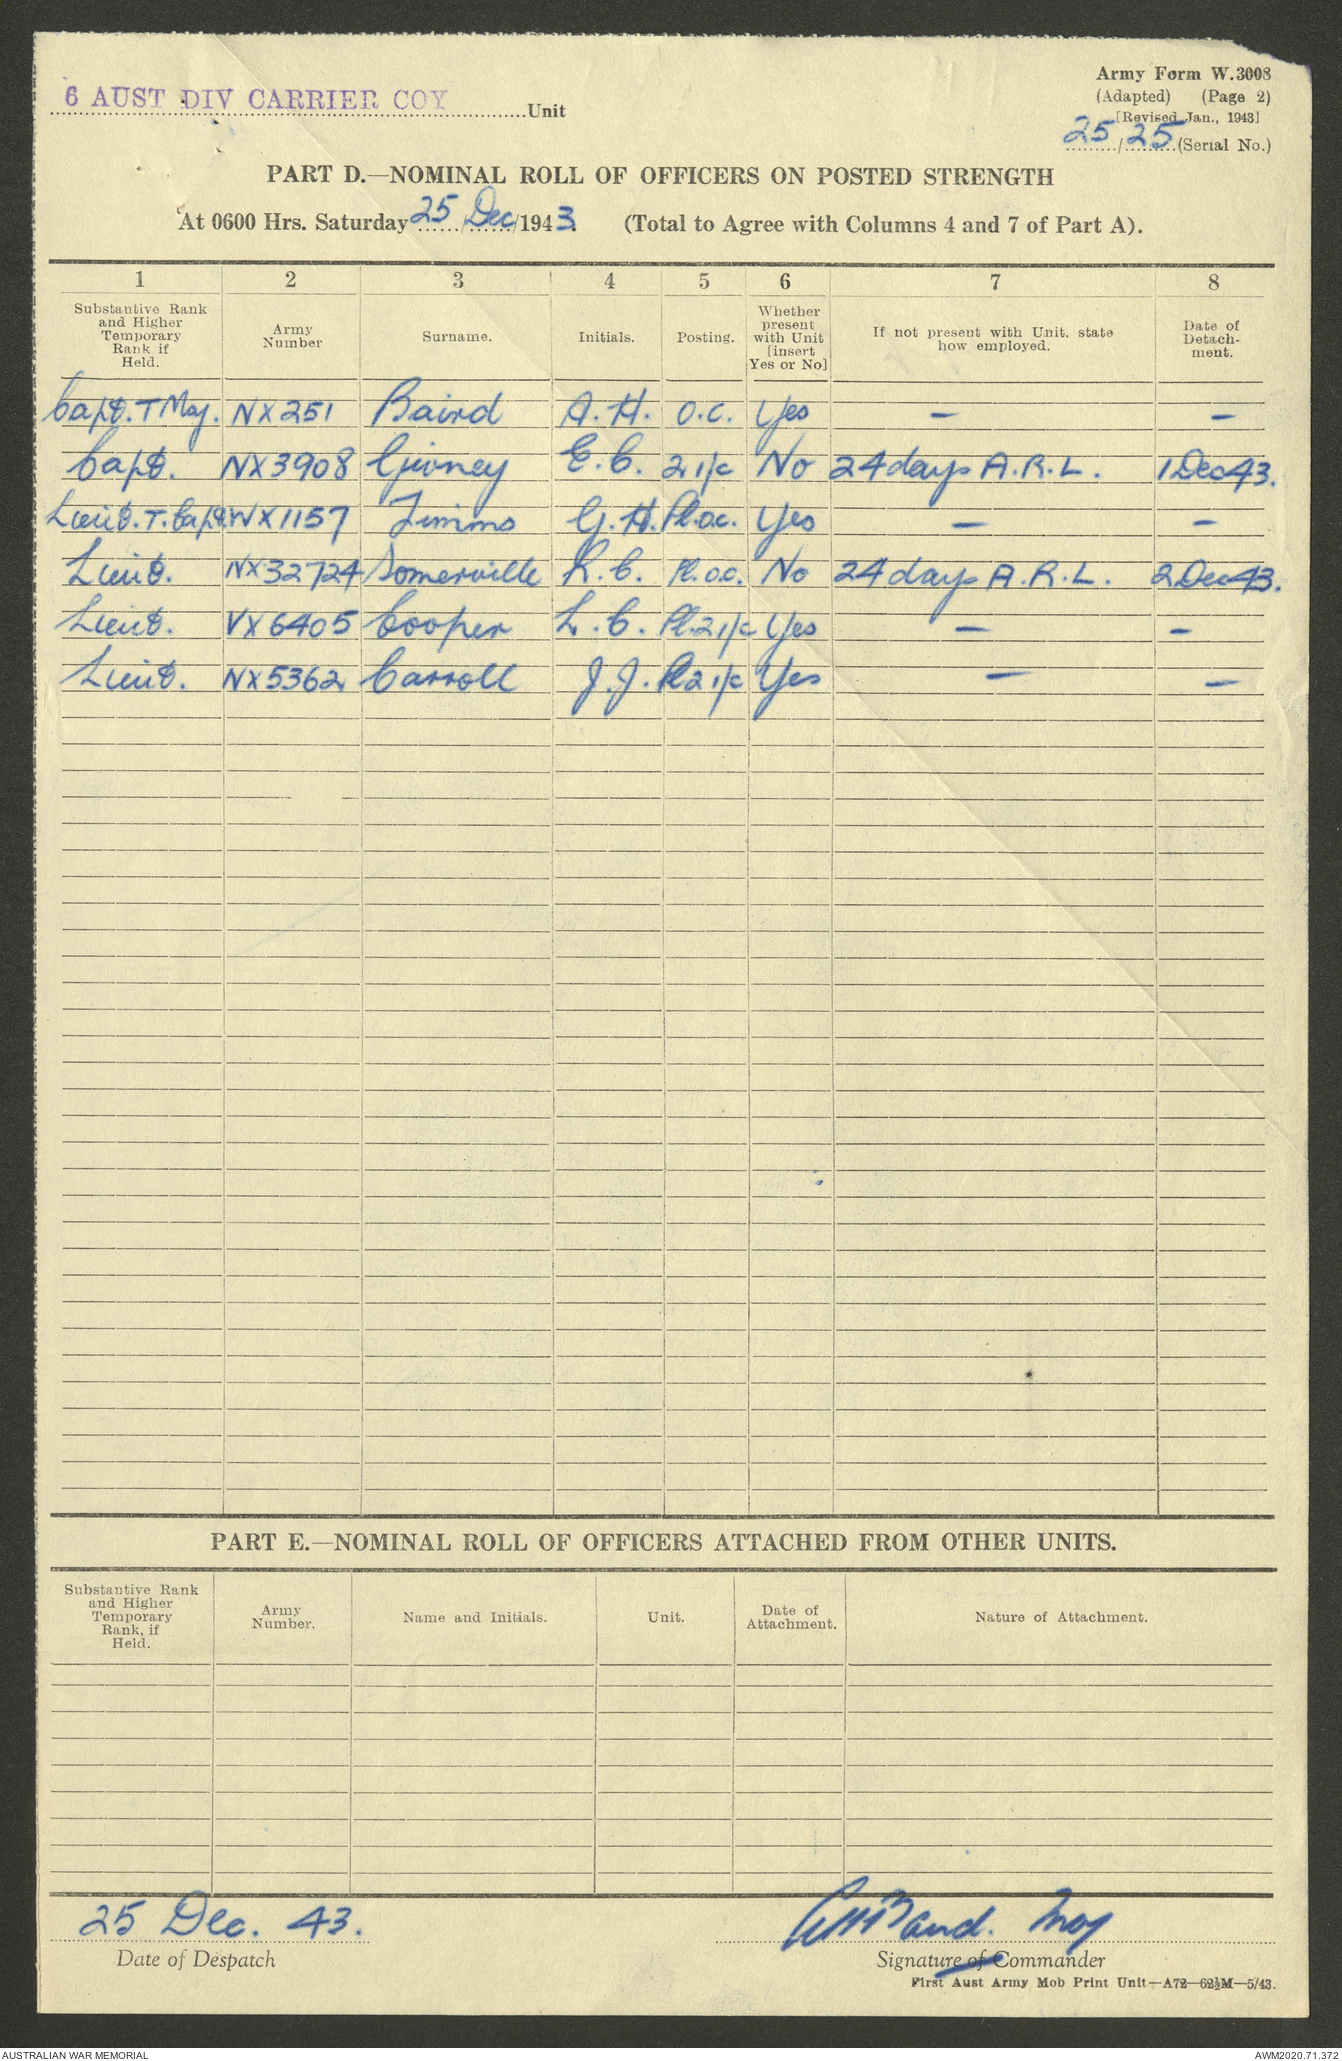 6 AUST DIV CARRIER COY Unit
Army Form W.3008
(Adapted) (Page 2)
[Revised Jan., 1943]
25/25 (Serial No.)
PART D.—NOMINAL ROLL OF OFFICERS ON POSTED STRENGTH
At 0600 Hrs. Saturday 25/Dec/1943. (Total to Agree with Columns 4 and 7 of Part A).
1 2 3 4 5 6 7 8
Substantive Rank and Higher Temporary Rank if Held. Army Number Surname. Initials. Posting. Whether present with Unit [insert Yes or No] If not present with Unit. state how employed. Date of Detachment.
Capt. T Maj. NX251 Baird A.H. O.C. Yes — —
Capt. NX3908 Givney E.C. 2 i/c No 24 days A.R.L. 1 Dec 43.
Lieut. T. Capt. WX1157 Timms G.H. Pl.o.c. Yes — —
Lieut. NX32724 Somerville R.C. Pl.o.c. No 24 days A.R.L. 2 Dec 43.
Lieut. VX6405 Cooper L.C. Pl.2 i/c Yes — —
Lieut. NX5362 Carroll J.J. Pl 2 i/c Yes — —
PART E.—NOMINAL ROLL OF OFFICERS ATTACHED FROM OTHER UNITS.
Substantive Rank and Higher Temporary Rank, if Held. Army Number. Name and Initials. Unit. Date of Attachment. Nature of Attachment.
25 Dec. 43. AHBaird. Maj
Date of Despatch Signature of Commander
First Aust Army Mob Print Unit—A72—62½M—5/43.
AUSTRALIAN WAR MEMORIAL AWM2020.71.372